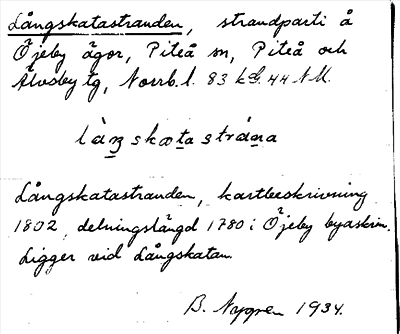 Långskatastranden, strandparti å
Öjeby ägor, Piteå sn, Piteå och
Älvsby tg, Norrb. l. 83 kv. 44 NM.
làŋskatastrána
Långskatastranden, kartbeskrivning
1802, delningslängd 1780 i Öjeby byaskrin.
Ligger vid Långskatan.
B. Nygren 1934.